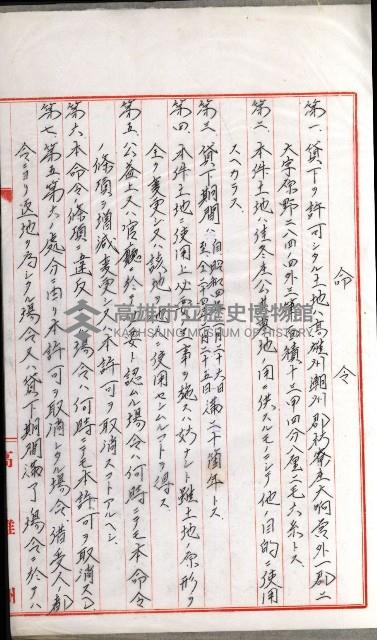 命令
第一、貸下ヲ許可シタル土地ハ高雄州潮州郡枋寮庄大响営外一郡ニ
大字原野二八四ノ内外三筆面積十三甲四分八厘二毛六糸トス
第二、本件土地ハ佳冬庄公共墓地用ニ供スルモノニシテ他ノ目的ニ使用
スヘカラス
第三、貸下期間ハ自昭和四年月二十六日至全年月二十五日満二十箇年トス
第四、本件土地ニ使用上必要ノ工事ヲ施スハ妨ナシト雖土地原形ヲ
全ク変更シ又ハ該地ヲ使用セシムルコトヲ得ス
第五、公益上又ハ官廳ニ於テ必要ト認ムル場合ハ何時ニテモ本命令
ノ條項ヲ増減変更シ又ハ本許可ヲ取消スコトアルヘシ
第六、本命令條項ニ違反シタル場合ハ何時ニテモ本許可ヲ取消スヘシ
第七、第五第六ノ處分ニ因リ本許可ヲ取消シタル場合借受人ノ都
合ニヨリ返地ヲ為シタル場合又ハ貸下期間満了場合ニ於テハ
高雄州
高雄市立歷史博物館
KAOHSIUNG MUSEUM OF HISTORY